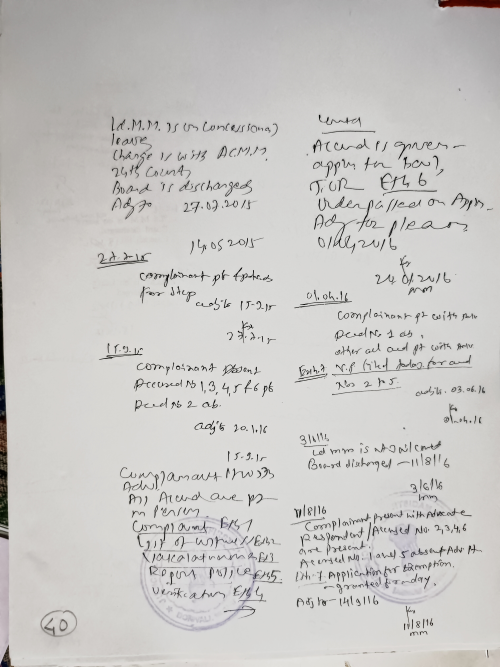 Ld. M.M. is on concessional
leave
charge is with ACMM
24th Court
Board is discharged
Adj to 27.07.2015
14.05.2015
27.7.15
complainant pt
For Steps
adj to 15.9.15
27.7.15
15.9.15
complainant present
Accused No 1, 3, 4, 5 & 6 pt
Accd No 2 ab.
adj to 20.1.16
15.9.15
Complainant
Adv
All Accused are pt
in Person.
Complaint Exh 1
List of witness Exh 2
Vakalatnama Exh 3
Report Police Exh 5
Verification Exh 4
40
Accused is given
appln for bail,
Exh 6
order passed on Appln
Adj for plea on
01/04/2016
24.01.2016
mm
01.04.16
complainant pt with adv
Accd No 1 ab,
other acd are pt with adv
Exh. 7 V.P. filed today for acd
No 2 to 5.
adj to 03.06.16
01.04.16
3/6/16
Ld mm is
Board discharged - 11/8/16
3/6/16
mm
11/8/16
Complainant present with Advocate
Respondent / Accused No. 2, 3, 4, 6
are present.
Accused No. 1 and 5 absent Adv
Application for Exemption.
- granted for day.
Adj to - 14/9/16
11/8/16
mm